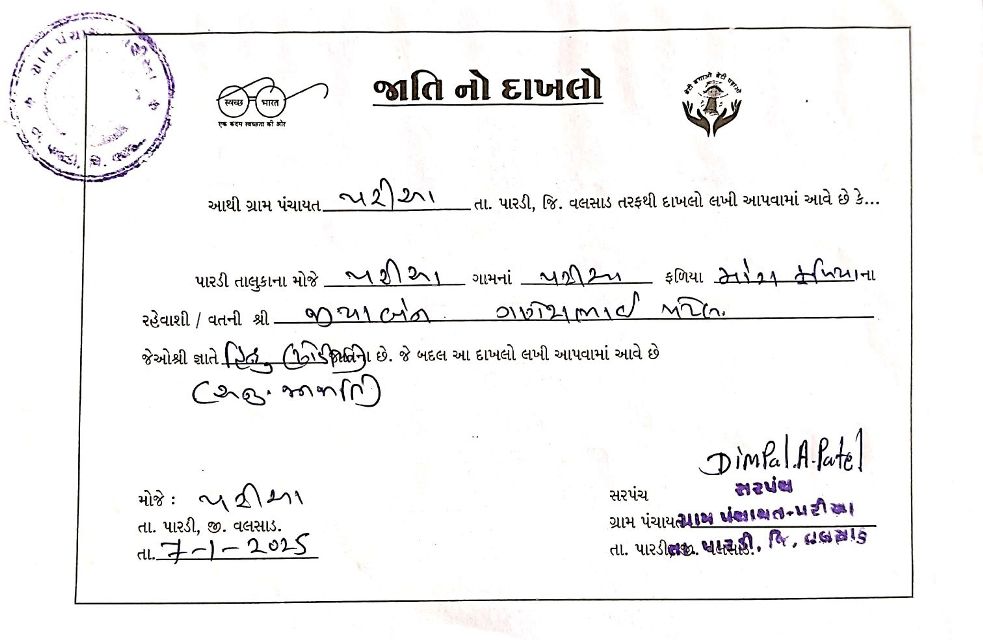 ગ્રામ પંચાયત
સ્વચ્છ ભારત
એક કદમ સ્વચ્છતા કી ઓર
જાતિ નો દાખલો
બેટી બચાઓ બેટી પઢાઓ
આથી ગ્રામ પંચાયત પરીઆ તા. પારડી, જિ. વલસાડ તરફથી દાખલો લખી આપવામાં આવે છે કે...
પારડી તાલુકાના મોજે પરીયા ગામનાં પરીઆ ફળિયા ફળિયાના
રહેવાશી / વતની શ્રી જીયાબેન ગણેશભાઈ પટેલ.
જેઓશ્રી જ્ઞાતે હિન્દુ ના છે. જે બદલ આ દાખલો લખી આપવામાં આવે છે
(અનુ. જનજાતિ)
મોજે : પરીઆ
તા. પારડી, જી. વલસાડ.
તા. 7-1-2025
Dimpal.A.Patel
સરપંચ
સરપંચ
ગ્રામ પંચાયત ગ્રામ પંચાયત-પરીઆ
તા. પારડી, જી. વલસાડ. તા. પારડી, જિ. વલસાડ